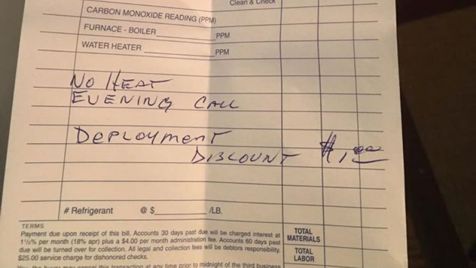 Clean & Check
CARBON MONOXIDE READING (PPM)
FURNACE - BOILER PPM
WATER HEATER PPM
NO HEAT
EVENING CALL
DEPLOYMENT
DISCOUNT $1.00
# Refrigerant @ $ /LB.
TERMS
Payment due upon receipt of this bill. Accounts 30 days past due will be charged interest at
1½% per month (18% apr) plus a $4.00 per month administration fee. Accounts 60 days past
due will be turned over for collection. All legal and collection fees will be debtors responsibility.
$25.00 service charge for dishonored checks.
TOTAL
MATERIALS
TOTAL
LABOR
this transaction at any time prior to midnight of the third business